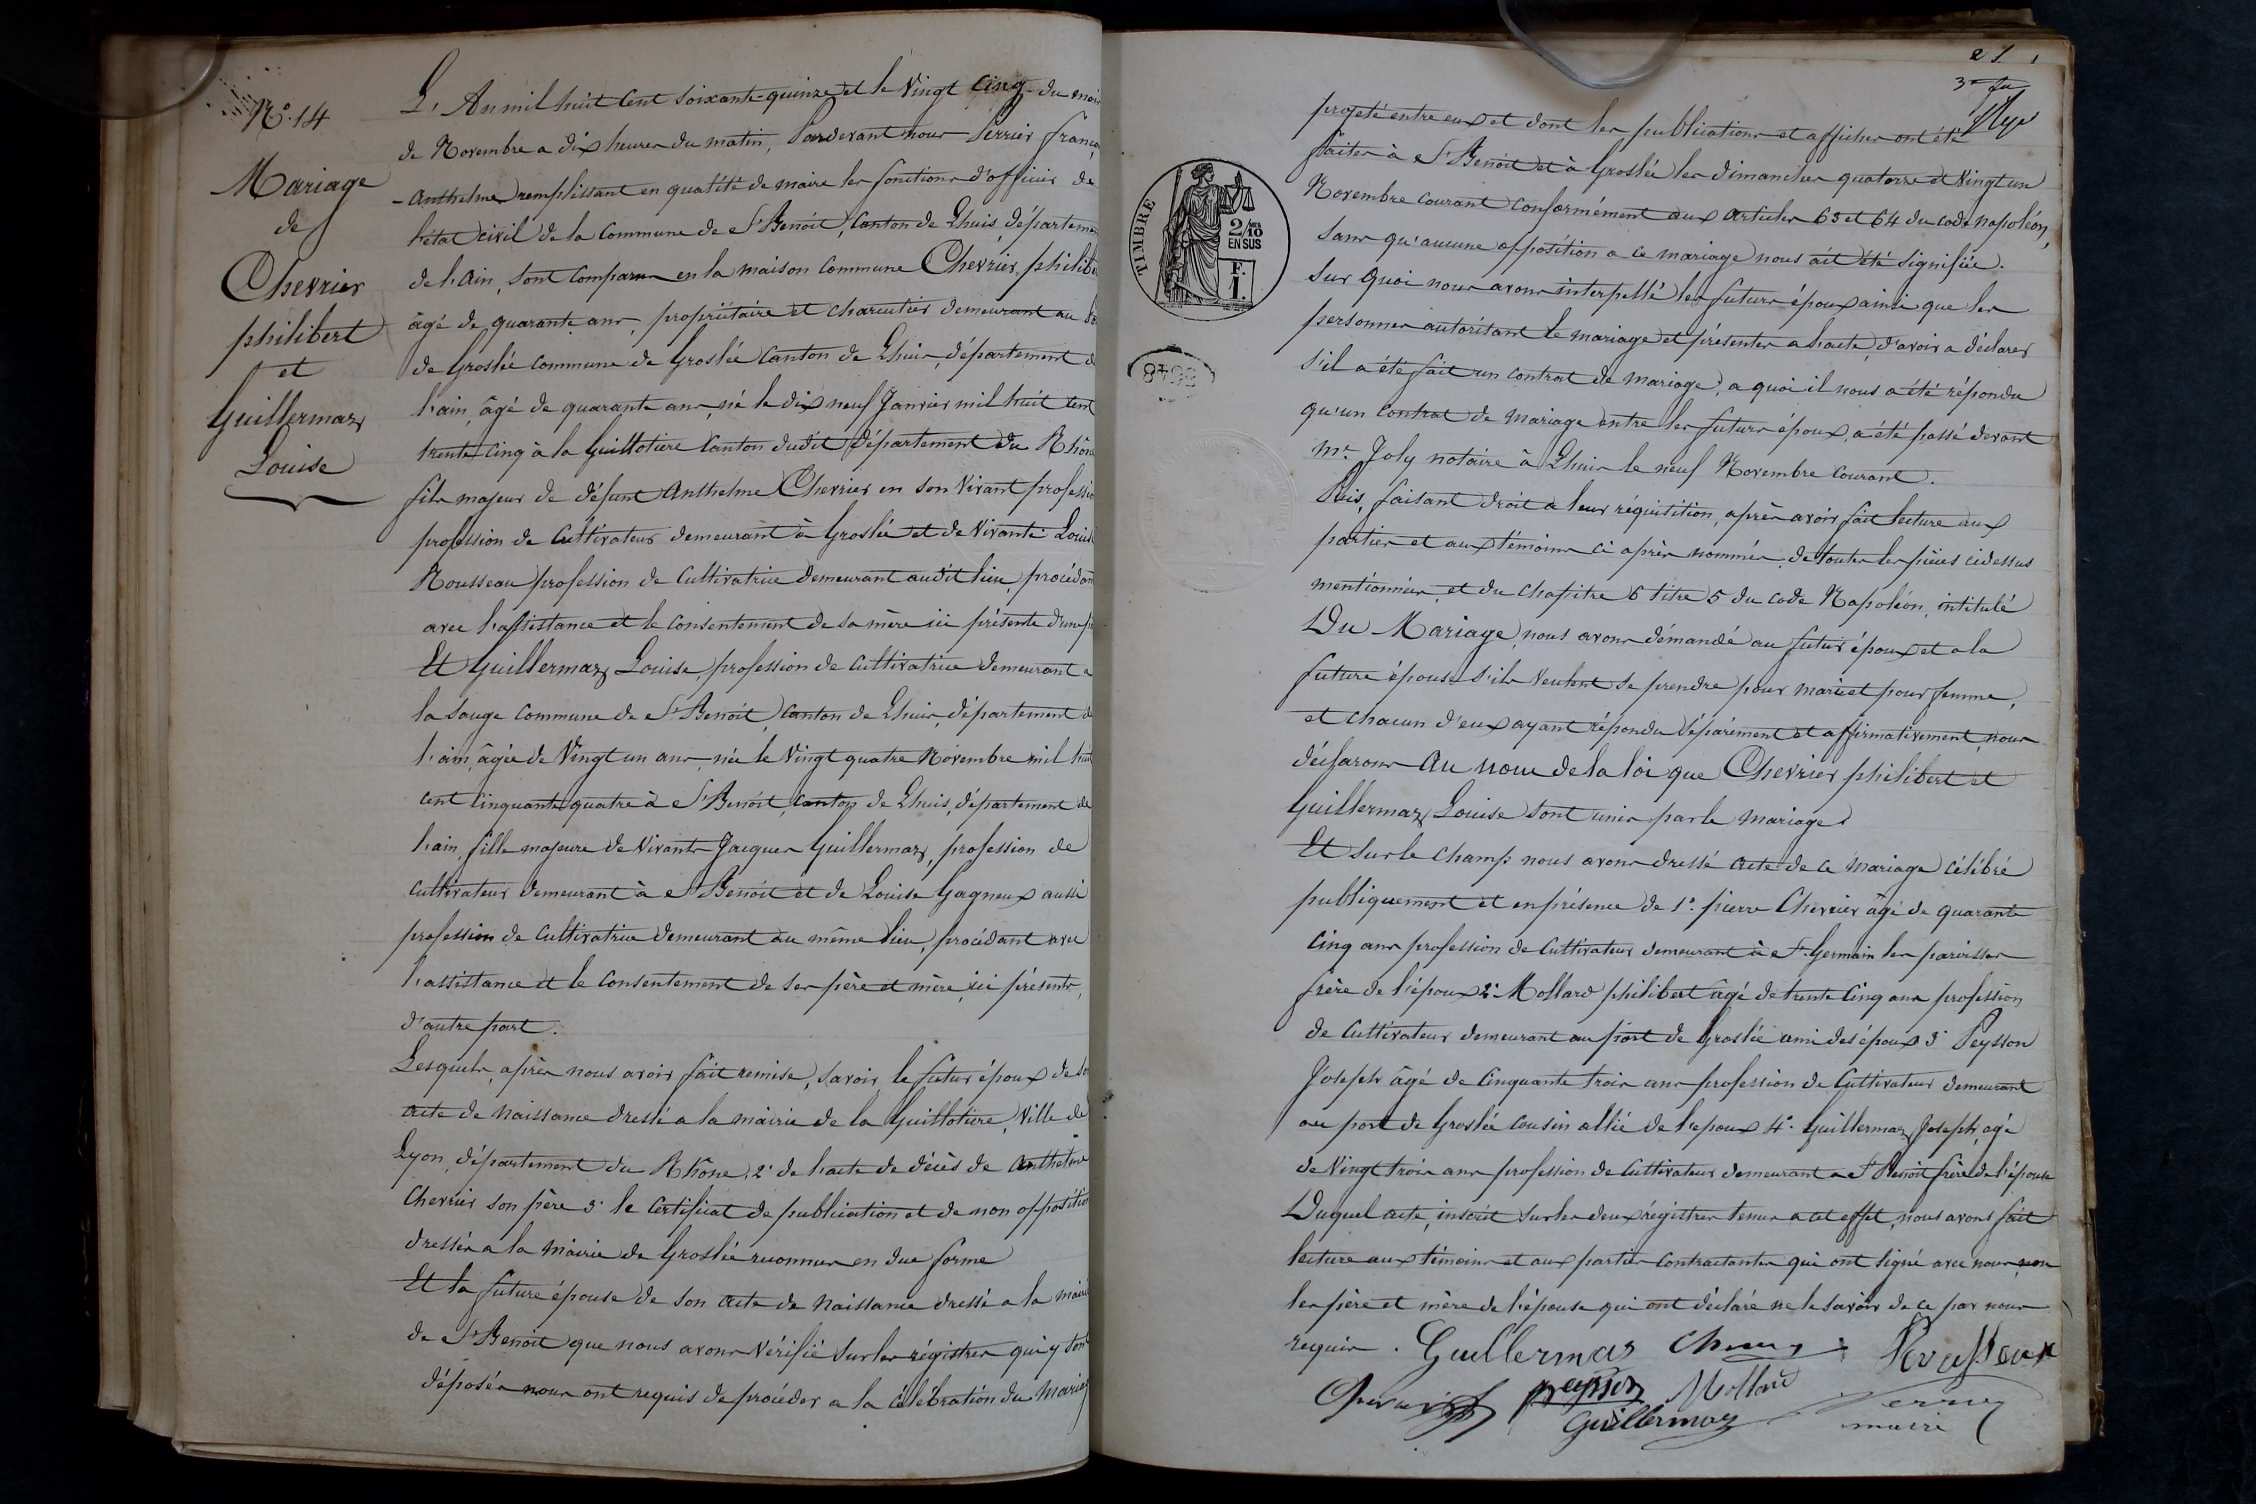 N° 14
Mariage
de
Chevrier
philibert
et
Guillermaz
Louise
L'An mil huit cent soixante-quinze et le Vingt cinq du mois
de Novembre a dix heures du matin, Pardevant nous Perrier franç
-Anthelme remplissant en qualité de maire les fonctions d'officier de
l'état civil de la Commune de St Benoit, Canton de Lhuis, départeme
de l'ain, sont comparus en la maison Commune Chevrier, philib
âgé de quarante ans, propriétaire et charcutier demeurant au
de Groslée commune de Groslée Canton de Lhuis, département d
l'ain, âgé de quarante ans, né le dix neuf Janvier mil huit cent
trente cinq à la Guillotière Canton dudit département du Rhône
fils majeur de défunt Anthelme Chevrier en son Vivant professio
profession de Cultivateur demeurant à Groslée et de Vivante Louis
Rousseau profession de Cultivatrice demeurant audit lieu, procédan
avec l'assistance et le consentement de sa mère ici présente d'une p
Et Guillermaz Louise, profession de Cultivatrice demeurant a
la Sauge commune de St Benoit, canton de Lhuis, département de
l'ain, âgée de Vingt un ans, née le Vingt quatre Novembre mil huit
cent cinquante quatre à St Benoit, canton de Lhuis, département de
l'ain, fille majeure de Vivants Jacques Guillermaz, profession de
cultivateur demeurant à St Benoit et de Louise Gagneux aussi
profession de Cultivatrice demeurant au même lieu, procédant avec
l'assistance et le consentement de ses père et mère, ici présents,
d'autre part.
Lesquels, après nous avoir fait remise, savoir, le futur époux de so
acte de naissance dressé a la mairie de la Guillotière, Ville de
Lyon, département du Rhône, 2° de l'acte de décès de Anthelme
Chevrier son père 3° le Certificat de publication et de non oppositio
dressés a la Mairie de Groslée reconnus en due forme
Et la future épouse de son acte de Naissance dressé a la mairie
de St Benoit que nous avons Vérifié sur les régistres qui y sont
déposés nous ont requis de procéder a la célébration du Mariag
27
3e
projeté entre eux et dont les publications et affiches ont été
faites à St Benoit et à Groslée les dimanches quatorze et Vingt un
Novembre courant conformément aux articles 63 et 64 du code napoléon,
sans qu'aucune opposition a ce mariage nous ait été signifiée.
Sur quoi nous avons interpellé les futurs époux ainsi que les
personnes autorisant le mariage et présentes a l'acte, d'avoir a déclarer
s'il a été fait un contrat de mariage, a quoi il nous a été répondu
qu'un contrat de mariage entre les futurs époux, a été passé devant
Me Joly notaire à Lhuis le neuf Novembre courant.
Puis, faisant droit a leur réquisition, après avoir fait lecture aux
parties et aux témoins ci après nommés, de toutes les pièces cidessus
mentionnées et du chapitre 6 titre 5 du code Napoléon, intitulé
Du Mariage, nous avons démandé au futur époux et a la
future épouse s'ils veulent se prendre pour mari et pour femme,
et chacun d'eux ayant répondu séparément et affirmativement, nous
déclarons au nom de la loi que Chevrier philibert et
Guillermaz Louise sont unis par le mariage.
Et sur le champ nous avons dressé acte de ce Mariage célébré
publiquement et en présence de 1° pierre Chevrier âgé de quarante
cinq ans profession de Cultivateur demeurant à St Germain les paroisses
frère de l'époux 2° Mollard philibert âgé de trente cinq ans profession
de Cultivateur demeurant au port de Groslée ami des époux 3° Peysson
Joseph âgé de Cinquante trois ans profession de Cultivateur demeurant
au port de Groslée cousin allié de l'époux 4° Guillermaz Joseph, agé
de Vingt trois ans profession de Cultivateur demeurant a St Benoit frère de l'épouse
Duquel acte, inscrit sur les deux régistres tenus a cet effet, nous avons fait
lecture aux témoins et aux parties contractantes qui ont signé avec nous non
les père et mère de l'épouse qui ont déclaré ne le savoir de ce par nous
requis.
Guillermaz Rousseau
peysson Mollard
Guillermoz Perrier
maire
TIMBRE
2/10
EN SUS
F.
1.